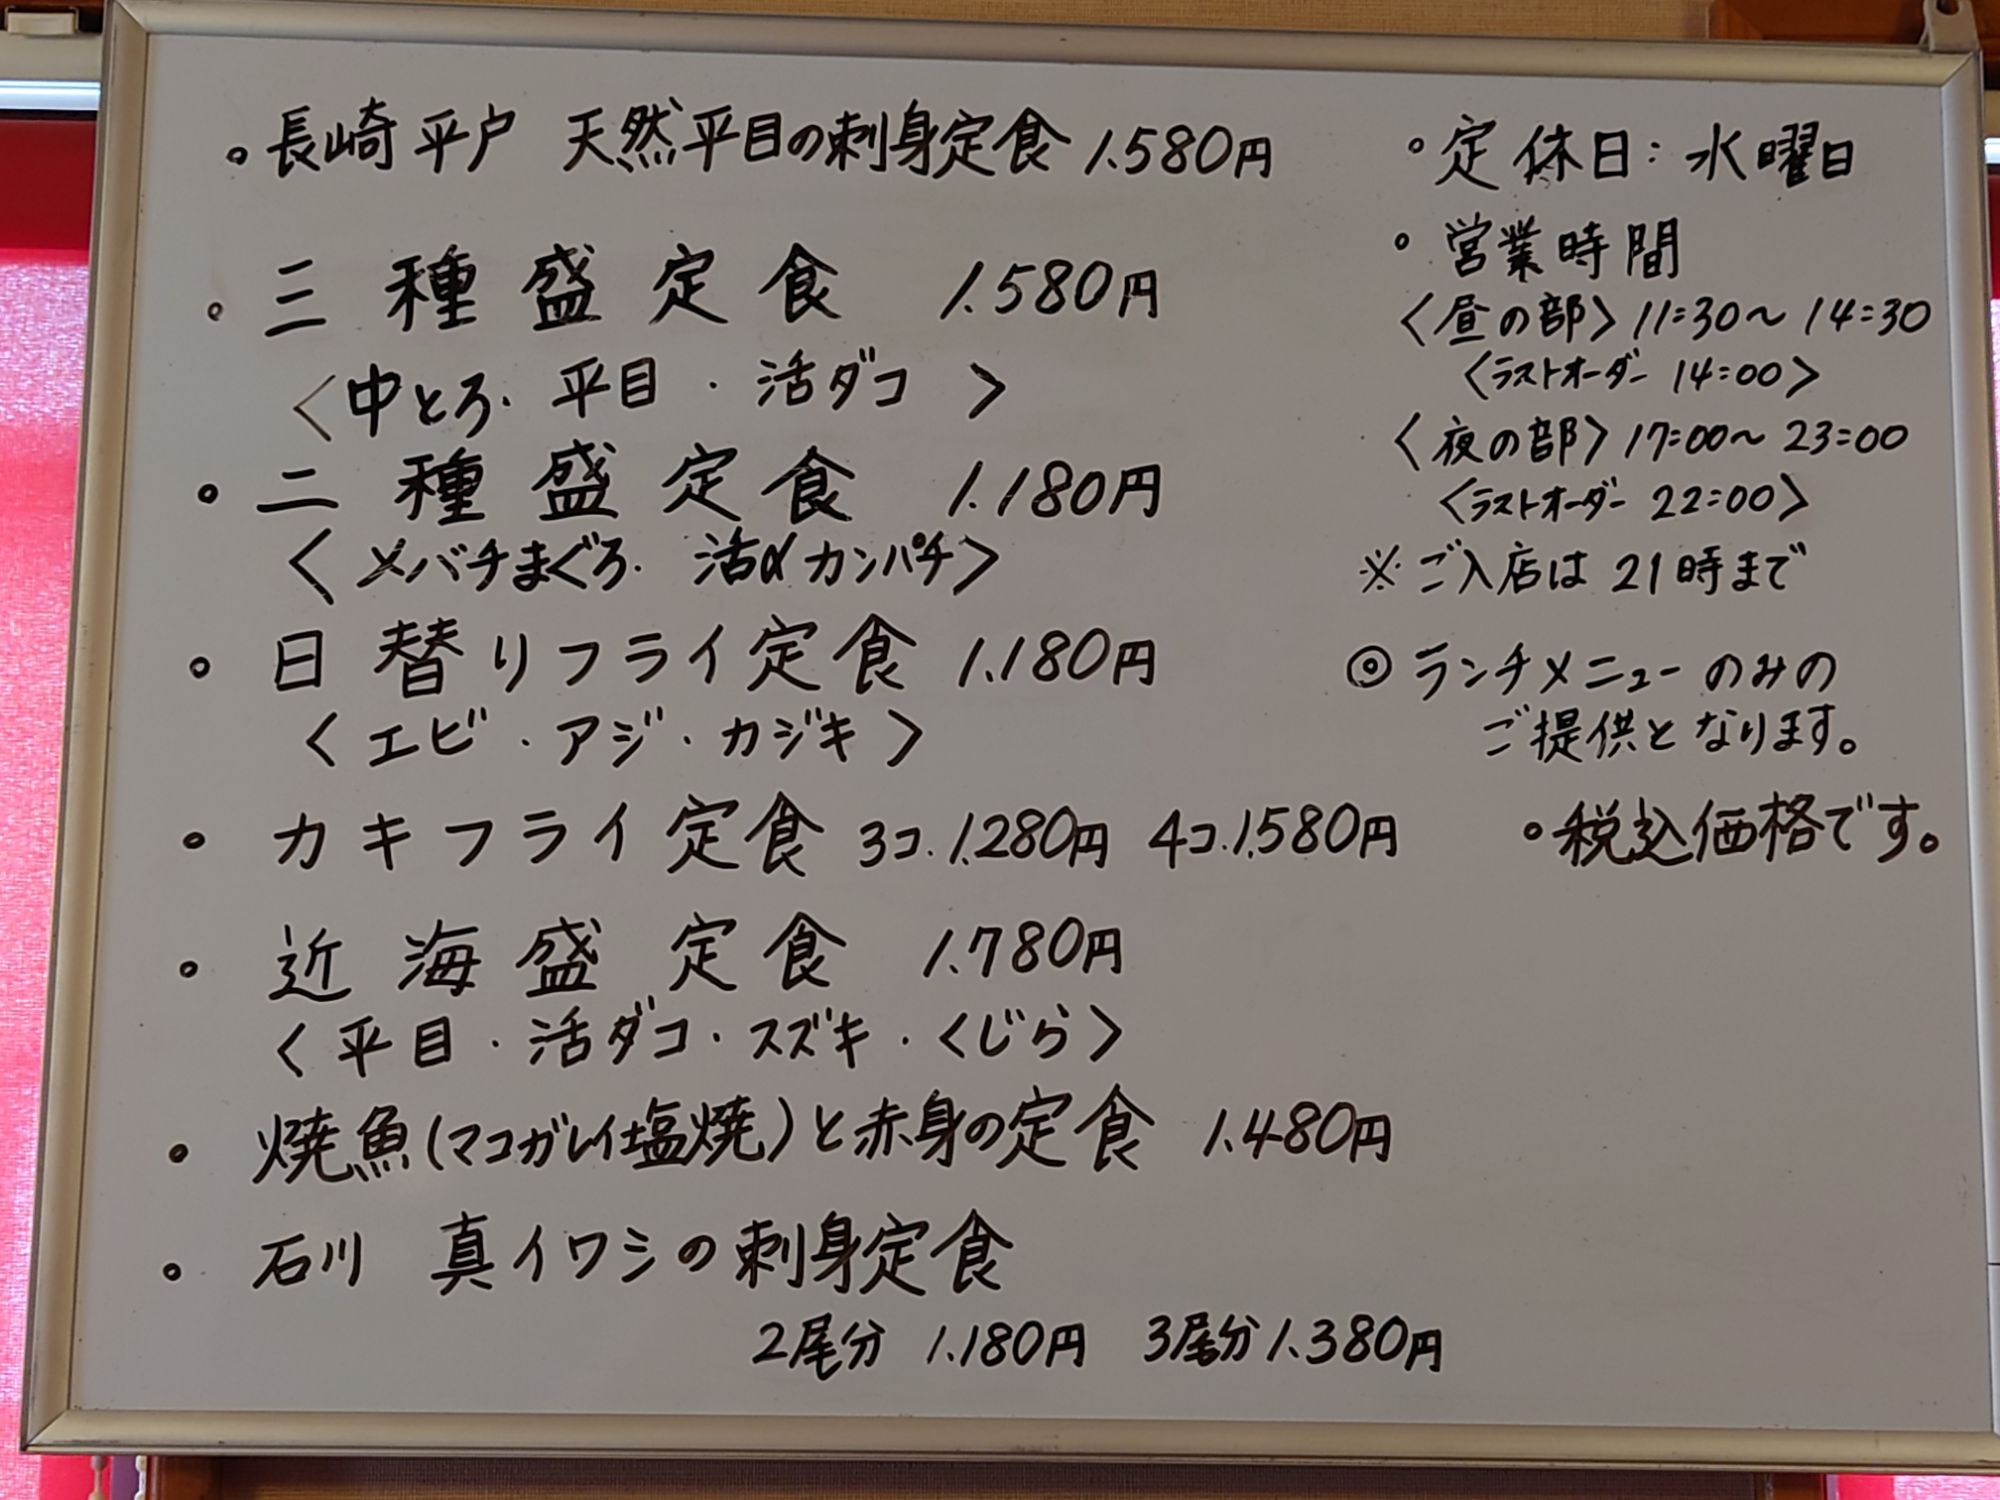 。長崎平戸 天然平目の刺身定食 1.580円
。三種盛定食 1.580円
〈中とろ・平目・活ダコ〉
。二種盛定食 1.180円
〈メバチまぐろ・活〆カンパチ〉
。日替りフライ定食 1.180円
〈エビ・アジ・カジキ〉
。カキフライ定食 3コ.1.280円 4コ.1.580円
。近海盛定食 1.780円
〈平目・活ダコ・スズキ・くじら〉
。焼魚(マコガレイ塩焼)と赤身の定食 1.480円
。石川 真イワシの刺身定食
2尾分 1.180円 3尾分 1.380円
。定休日:水曜日
。営業時間
〈昼の部〉11:30〜14:30
〈ラストオーダー 14:00〉
〈夜の部〉17:00〜23:00
〈ラストオーダー 22:00〉
※ご入店は21時まで
◎ランチメニューのみの
ご提供となります。
。税込価格です。